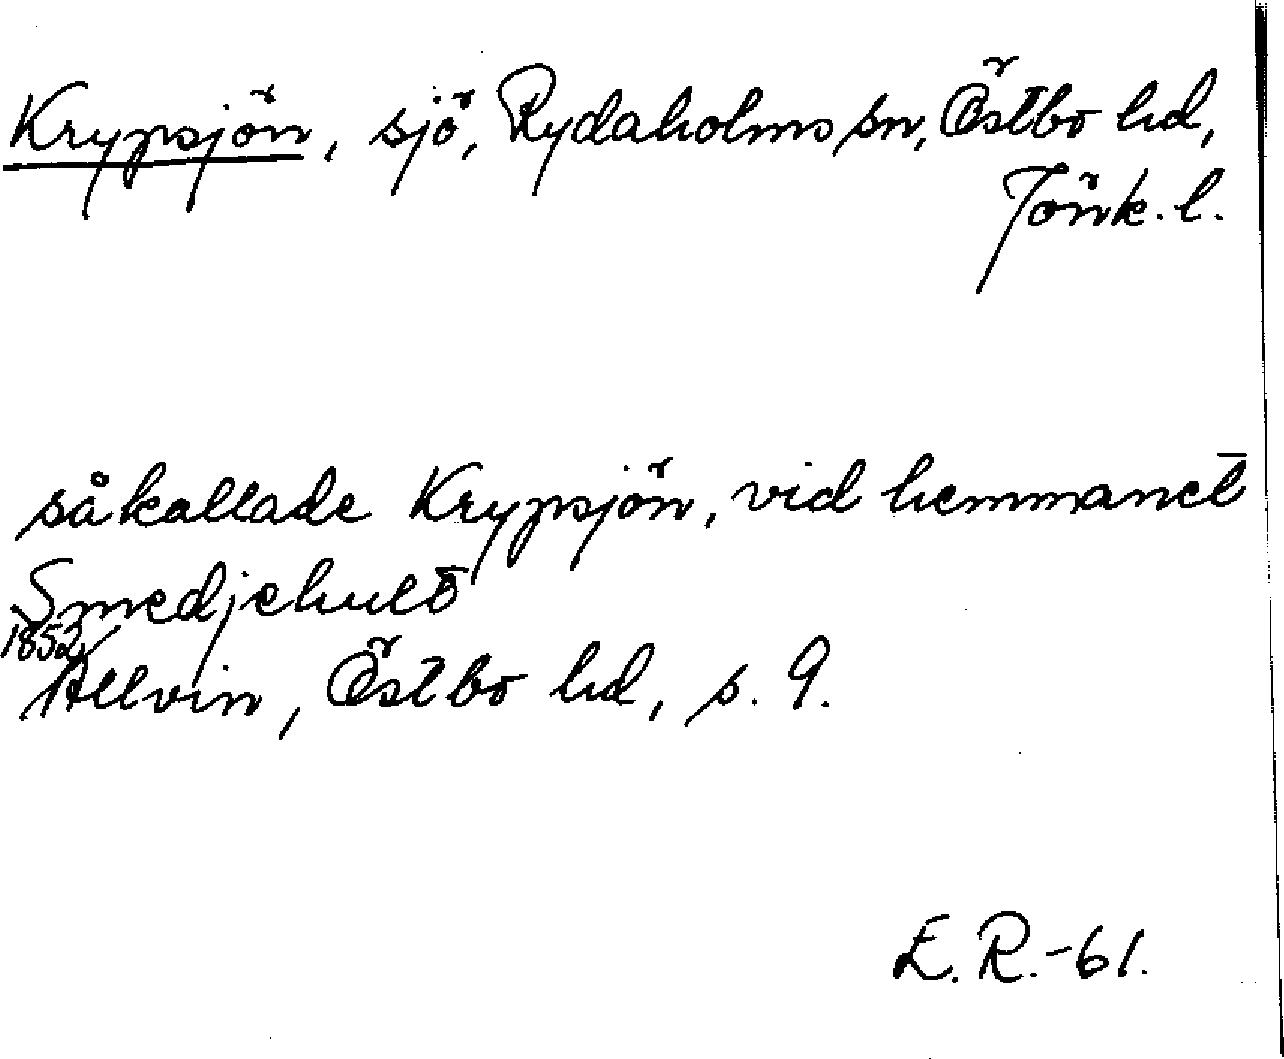 Krypsjön, sjö, Rydaholms sn, Östbo hd,
Jönk. l.
såkallade Krypsjön, vid hemmanet
Smedjehult
1852
Allvin, Östbo hd, s. 9.
E. R. -61.